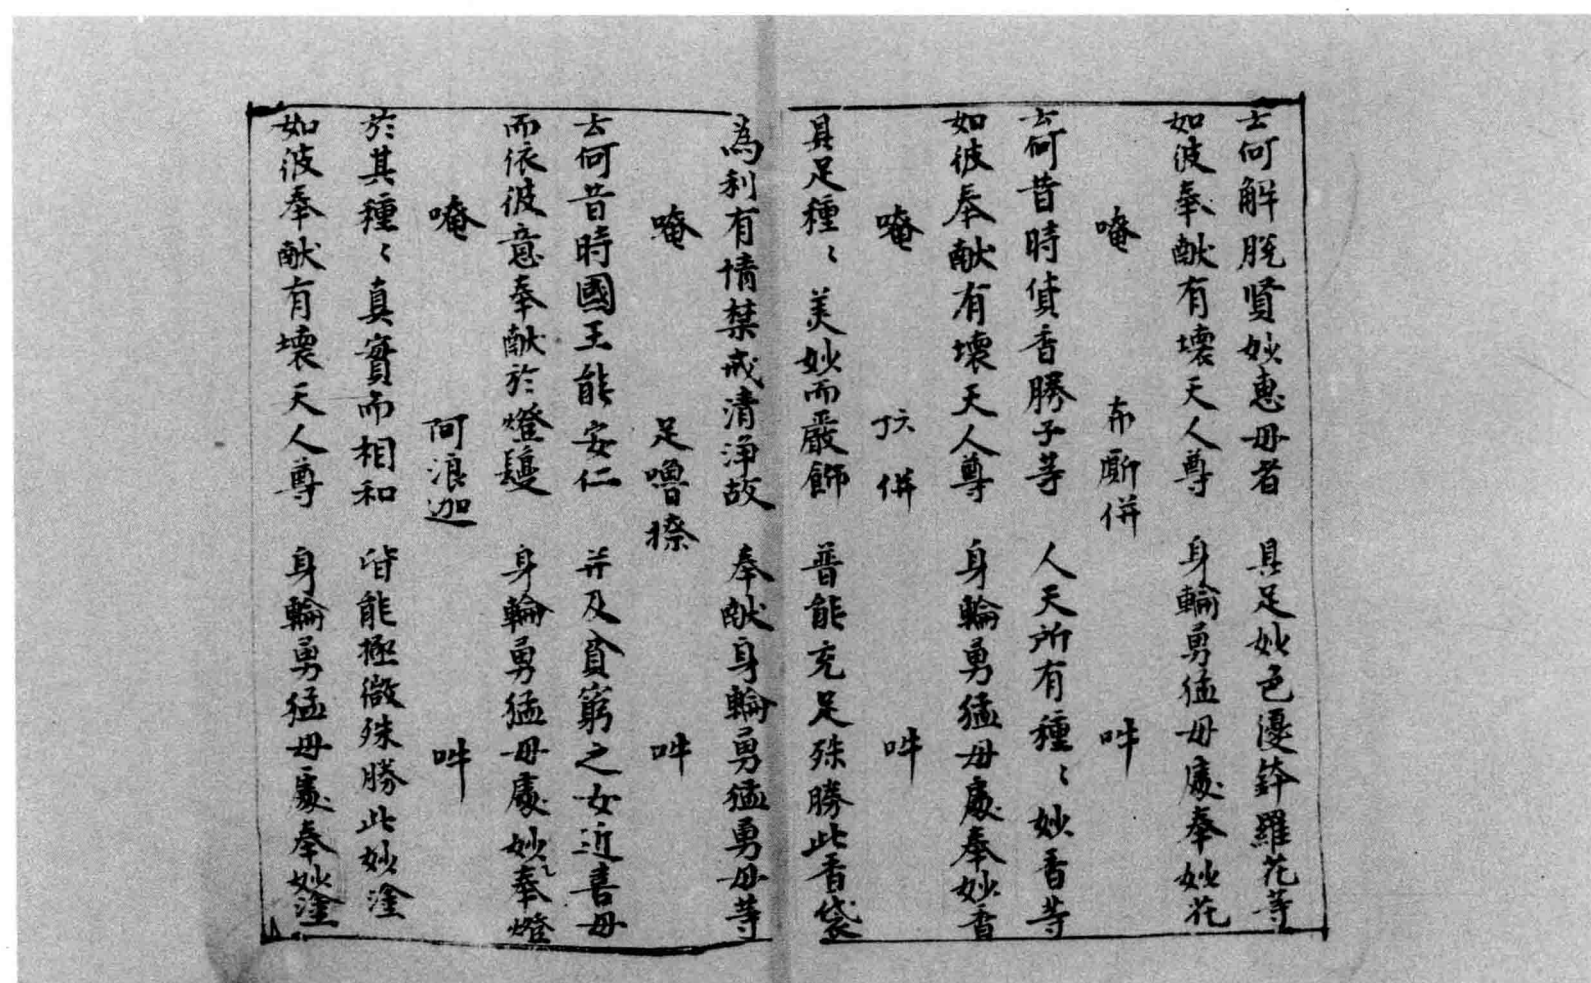 云何解脱賢妙惠母者　具足妙色優鉢羅花等
如彼奉献有壞天人尊　身輪勇猛母處奉妙花
唵　布厮併　吽
云何昔時貨香勝子等　人天所有種〻妙香等
如彼奉献有壞天人尊　身輪勇猛母處奉妙香
唵　併　吽
具足種〻美妙而嚴飾　普能充足殊勝此香袋
為利有情禁戒清淨故　奉献身輪勇猛勇母等
唵　足嚕捺　吽
云何昔時國王能安仁　并及貧窮之女近善母
而依彼意奉献於燈鬘　身輪勇猛母處妙奉燈
唵　阿浪迦　吽
於其種〻真實而相和　皆能極微殊勝此妙塗
如彼奉献有壞天人尊　身輪勇猛母處奉妙塗